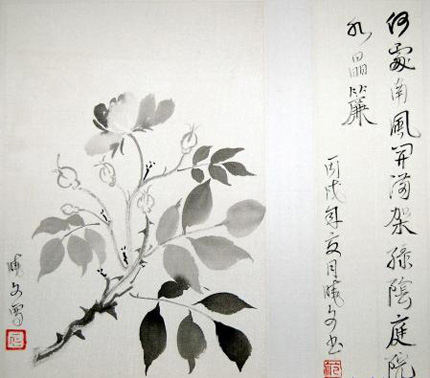 何處南風開滿架綠陰庭院
水晶簾
丙戌年夏月曉文書
曉文寫